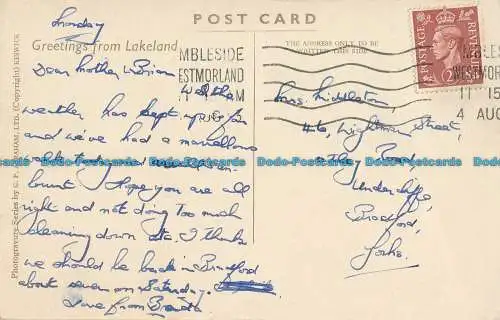 Sunday
POST CARD
Greetings from Lakeland
THE ADDRESS ONLY TO BE
WRITTEN THIS SIDE
MBLESIDE
ESTMORLAND
MBLES
WESTMOR
11 15
4 AUG
POSTAGE REVENUE
Dear Mother & Brian
Well the
weather has kept up
and we've had a marvellous
Hope you are all
right and not doing too much
cleaning down etc. I think
we should be back in Bradford
about seven on Saturday.
Love from
Mrs. Middleton,
46, Wightman Street,
Undercliffe,
Bradford,
Yorks.
Photogravure Series by G. P. ABRAHAM, LTD. (Copyright) KESWICK
Dodo-Postcards Dodo-Postcards Dodo-Postcards Dodo-Postcards